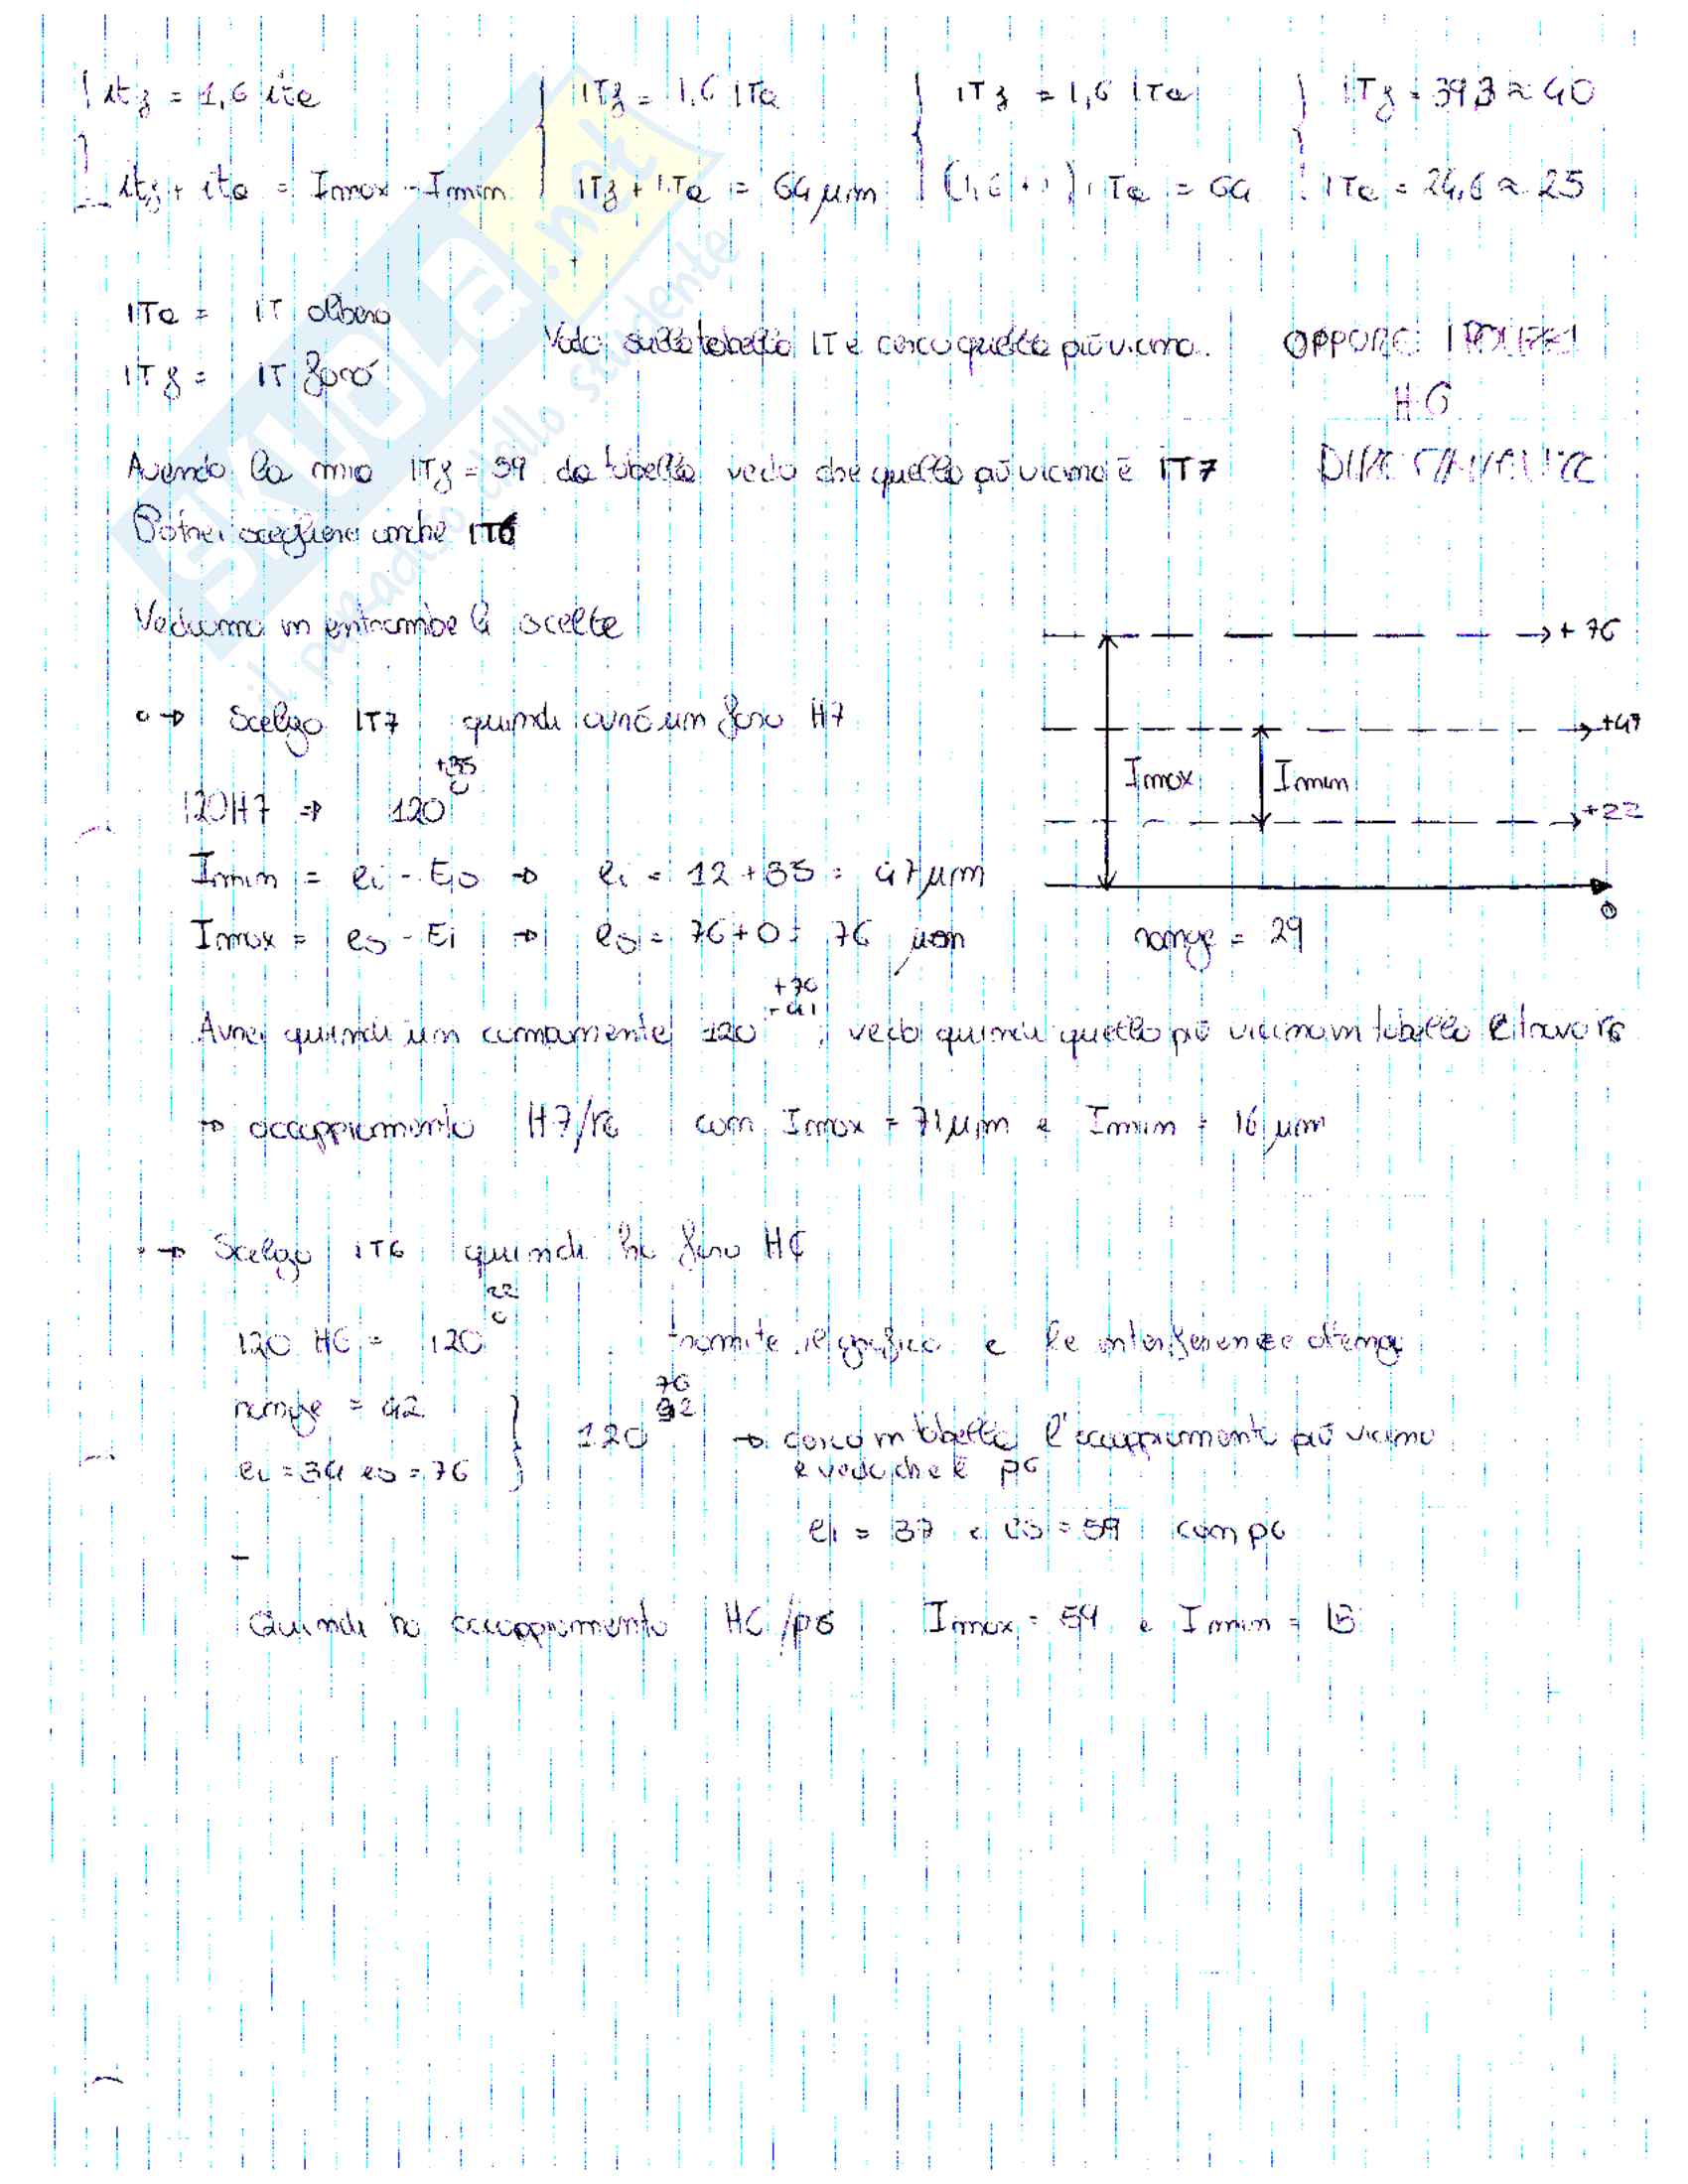 itf = 1,6 ita
itf + ita = Imax - Imin
ITf = 1,6 ITa
ITf + ITa = 64 μm
ITf = 1,6 ITa
(1,6+1) ITa = 64
ITf = 39,3 ≈ 40
ITa = 24,6 ≈ 25
ITa = IT albero
ITf = IT foro
Vado sulla tabella IT e cerco quella più vicina. OPPURE
H6
Avendo la mia ITf = 39 da tabella vedo che quella più vicina è IT7
Potrei scegliere anche IT6
Vediamo in entrambe le scelte
→ Scelgo IT7 quindi avrò un foro H7
120H7 ⇒ 120 +35 0
Imin = ei - Es → ei = 12 + 35 = 47 μm
Imax = es - Ei → es = 76 + 0 = 76 μm
+76
+47
Imax Imin
+22
0
range = 29
Avrei quindi un 120 , vedo quindi quello più vicino in tabella e trovo r6
→ accoppiamento H7/r6 com Imax = 71 μm e Imin = 16 μm
→ Scelgo IT6 quindi ho foro H6
120 H6 = 120 22 0 tramite il grafico e le interferenze ottengo
range = 42
ei = 34 es = 76
120 76
→ cerco in tabella l'accoppiamento più vicino
e vedo che è p6
ei = 37 e es = 59 com p6
Quindi ho accoppiamento H6/p6 Imax = 59 e Imin = 15
SKUOLA.net
il paradiso dello studente